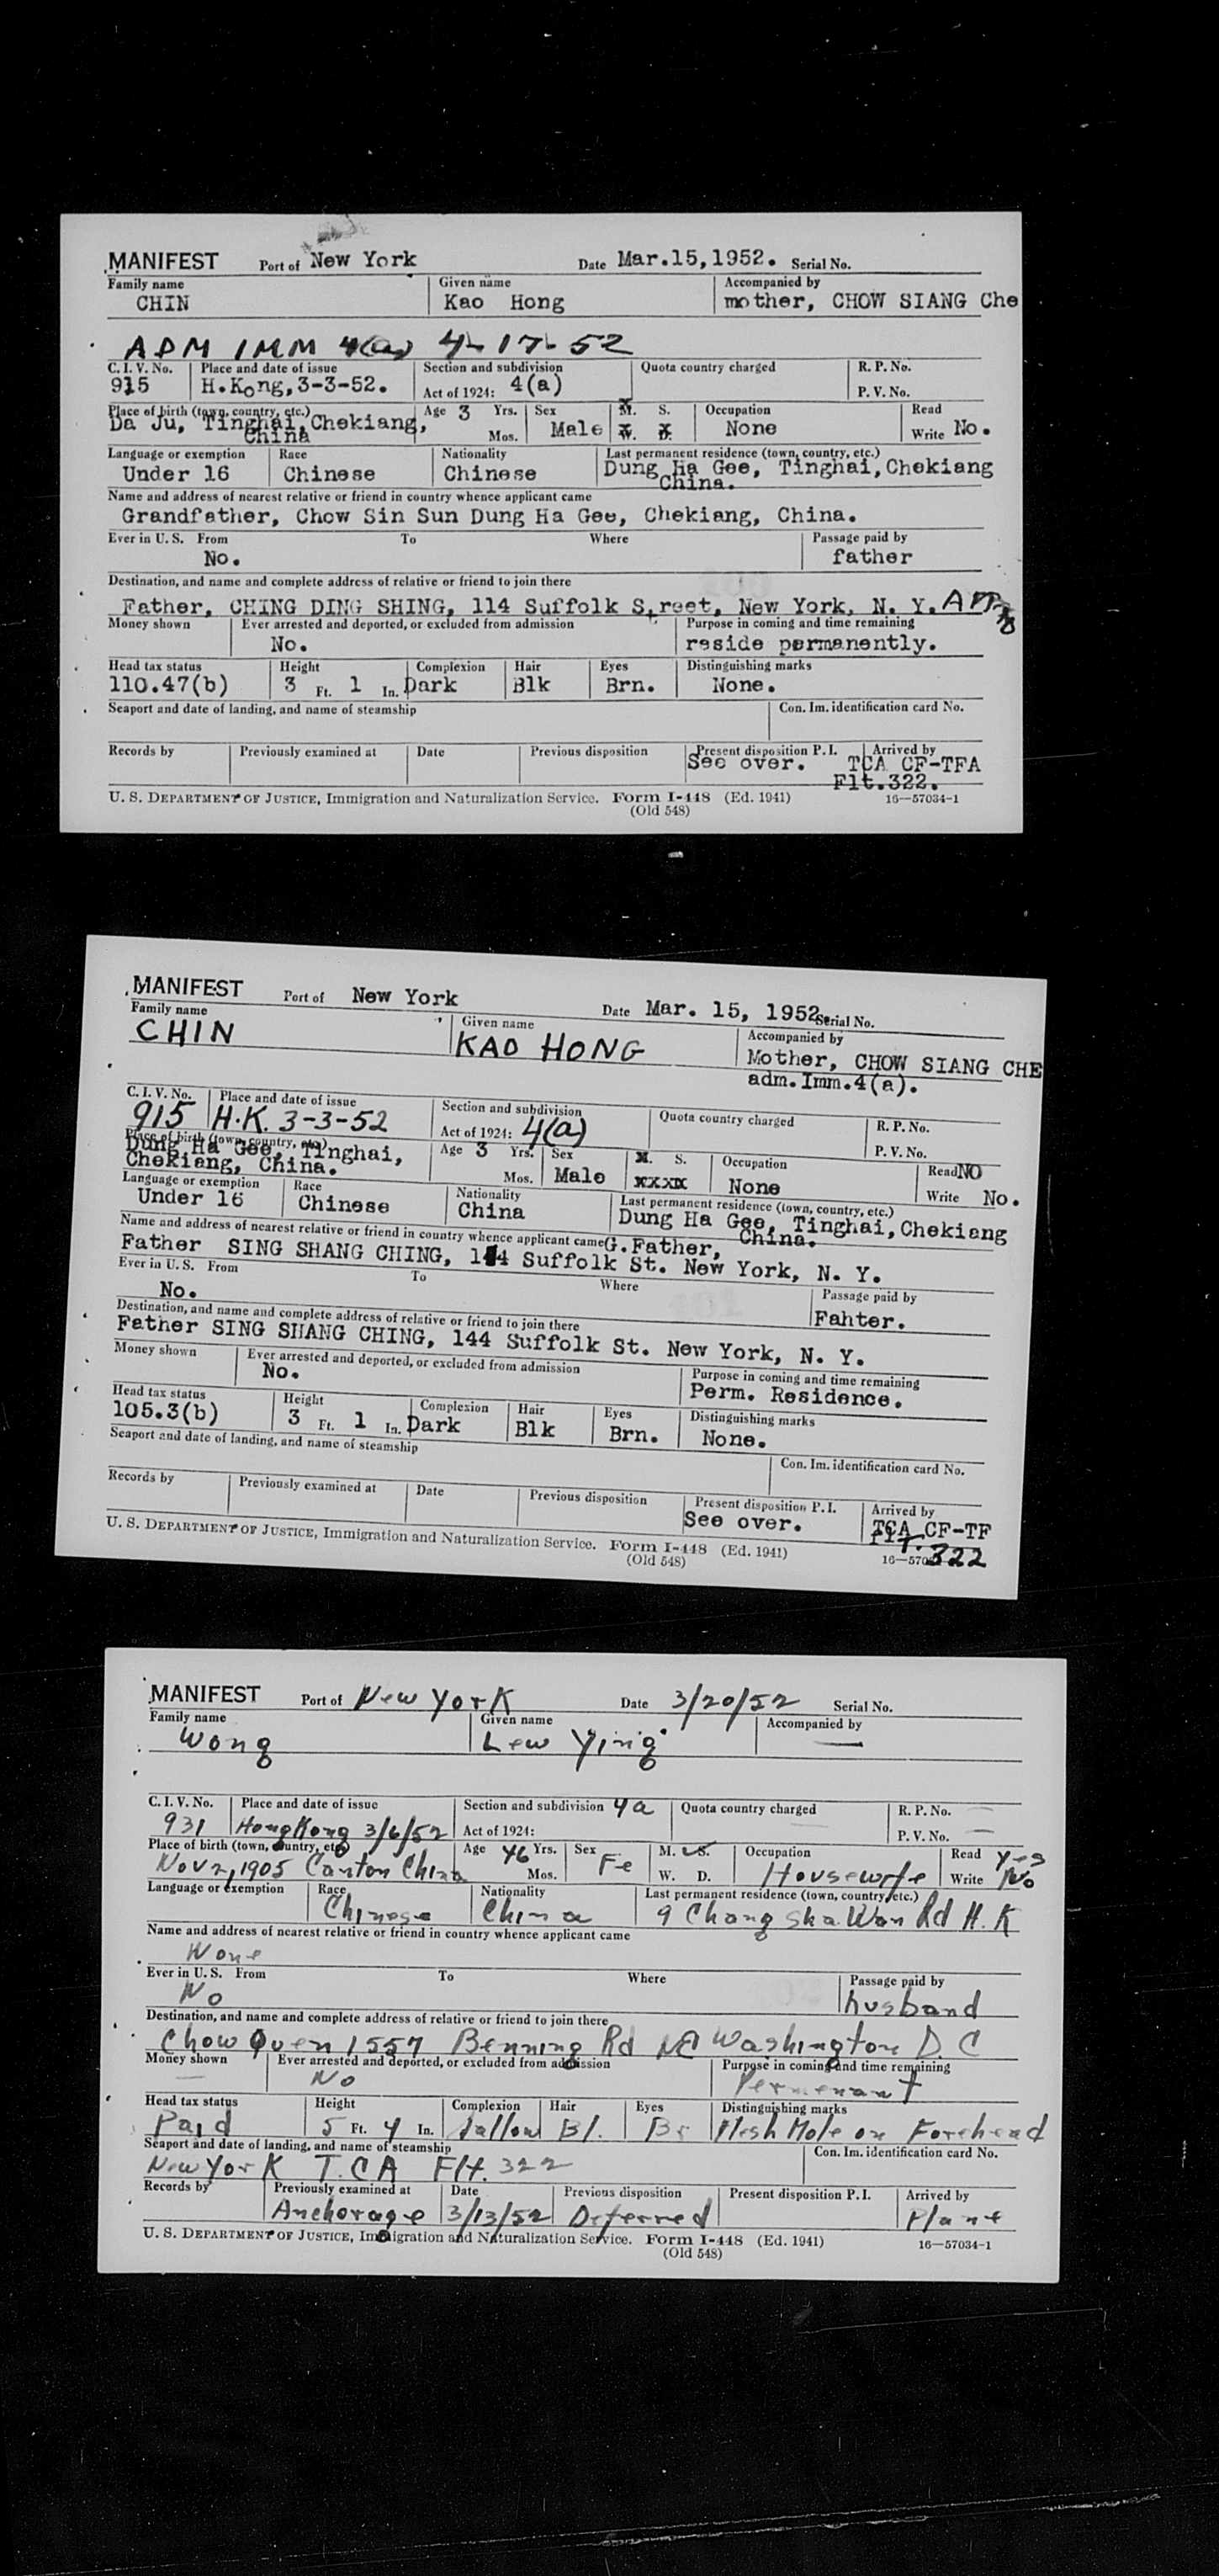 MANIFEST Port of New York Date Mar.15,1952. Serial No.
Family name Given name Accompanied by
CHIN Kao Hong mother, CHOW SIANG Che
ADM IMM 4(a) 4-17-52
C. I. V. No. Place and date of issue Section and subdivision Quota country charged R. P. No.
915 H.Kong,3-3-52. Act of 1924: 4(a) P. V. No.
Place of birth (town, country, etc.) Age 3 Yrs. Sex M. S. Occupation Read
Da Ju, Tinghai,Chekiang, Mos. Male W. D. None Write No.
China
Language or exemption Race Nationality Last permanent residence (town, country, etc.)
Under 16 Chinese Chinese Dung Ha Gee, Tinghai,Chekiang
China.
Name and address of nearest relative or friend in country whence applicant came
Grandfather, Chow Sin Sun Dung Ha Gee, Chekiang, China.
Ever in U. S. From To Where Passage paid by
No. father
Destination, and name and complete address of relative or friend to join there
Father, CHING DING SHING, 114 Suffolk Street, New York, N. Y.
Money shown Ever arrested and deported, or excluded from admission Purpose in coming and time remaining
No. reside permanently.
Head tax status Height Complexion Hair Eyes Distinguishing marks
110.47(b) 3 Ft. 1 In. Dark Blk Brn. None.
Seaport and date of landing, and name of steamship Con. Im. identification card No.
Records by Previously examined at Date Previous disposition Present disposition P. I. Arrived by
See over. TCA CF-TFA
Flt.322.
U. S. DEPARTMENT OF JUSTICE, Immigration and Naturalization Service. Form I-448 (Ed. 1941) 16—57034-1
(Old 548)
MANIFEST Port of New York Date Mar. 15, 1952 Serial No.
Family name Given name Accompanied by
CHIN KAO HONG Mother, CHOW SIANG CHE
adm.Imm.4(a).
C. I. V. No. Place and date of issue Section and subdivision Quota country charged R. P. No.
915 H.K. 3-3-52 Act of 1924: 4(a) P. V. No.
Place of birth (town, country, etc.) Age 3 Yrs. Sex M. S. Occupation Read NO
Dung Ha Gee, Tinghai, Mos. Male xxxx None Write No.
Chekiang, China.
Language or exemption Race Nationality Last permanent residence (town, country, etc.)
Under 16 Chinese China Dung Ha Gee, Tinghai,Chekiang
China.
Name and address of nearest relative or friend in country whence applicant came G. Father,
Father SING SHANG CHING, 144 Suffolk St. New York, N. Y.
Ever in U. S. From To Where Passage paid by
No. Fahter.
Destination, and name and complete address of relative or friend to join there
Father SING SHANG CHING, 144 Suffolk St. New York, N. Y.
Money shown Ever arrested and deported, or excluded from admission Purpose in coming and time remaining
No. Perm. Residence.
Head tax status Height Complexion Hair Eyes Distinguishing marks
105.3(b) 3 Ft. 1 In. Dark Blk Brn. None.
Seaport and date of landing, and name of steamship Con. Im. identification card No.
Records by Previously examined at Date Previous disposition Present disposition P. I. Arrived by
See over. TCA CF-TF
FLT. 322
U. S. DEPARTMENT OF JUSTICE, Immigration and Naturalization Service. Form I-448 (Ed. 1941)
(Old 548)
MANIFEST Port of New York Date 3/20/52 Serial No.
Family name Given name Accompanied by
Wong Lew Ying —
C. I. V. No. Place and date of issue Section and subdivision 4a Quota country charged R. P. No. —
931 Hong Kong 3/6/52 Act of 1924: P. V. No. —
Place of birth (town, country, etc.) Age 46 Yrs. Sex M. S. Occupation Read Yes
Nov 2, 1905 Canton China Mos. Fe W. D. Housewife Write No
Language or exemption Race Nationality Last permanent residence (town, country, etc.)
Chinese China 9 Chong Sha Wan Rd H. K
Name and address of nearest relative or friend in country whence applicant came
None
Ever in U. S. From To Where Passage paid by
No husband
Destination, and name and complete address of relative or friend to join there
Chow Quen 1557 Benning Rd NE Washington D. C
Money shown Ever arrested and deported, or excluded from admission Purpose in coming and time remaining
— No Permenant
Head tax status Height Complexion Hair Eyes Distinguishing marks
Paid 5 Ft. 4 In. Sallow Bl. Br Flesh Mole on Forehead
Seaport and date of landing, and name of steamship Con. Im. identification card No.
New York T.C A Flt. 322
Records by Previously examined at Date Previous disposition Present disposition P. I. Arrived by
Anchorage 3/13/52 Deferred Plane
U. S. DEPARTMENT OF JUSTICE, Immigration and Naturalization Service. Form I-448 (Ed. 1941) 16—57034-1
(Old 548)